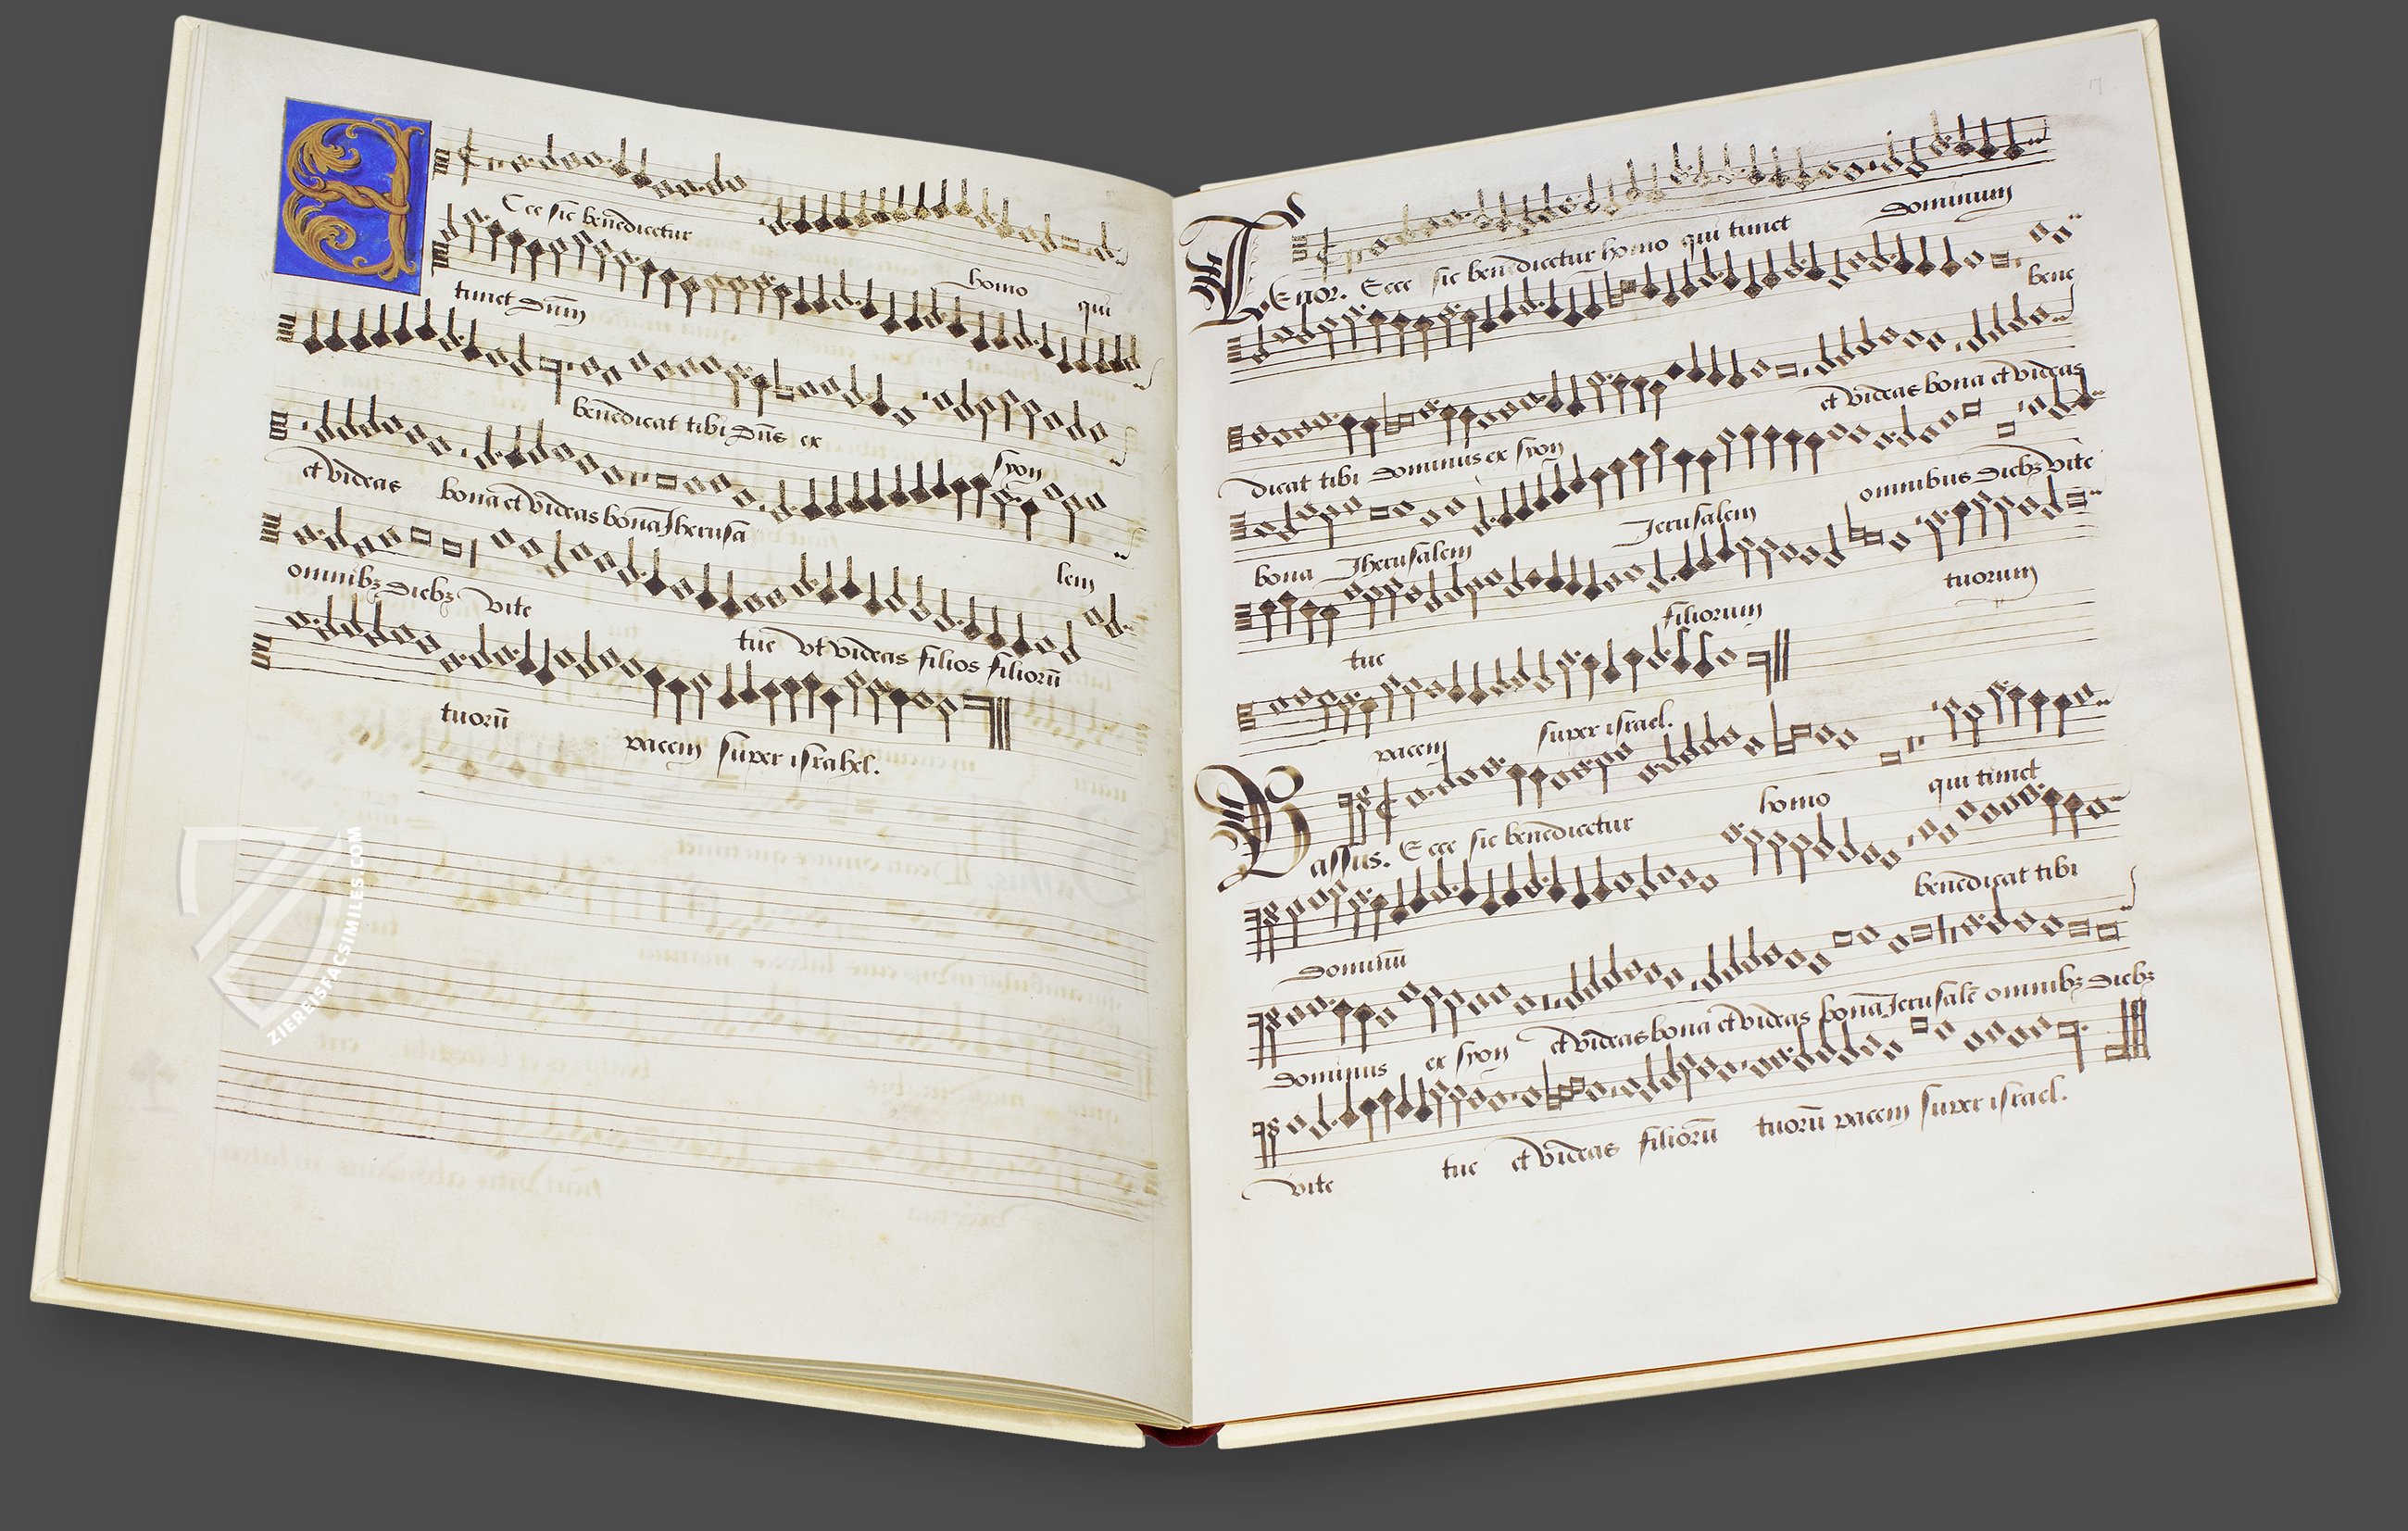 Ecce sic benedicetur
homo qui
timet dūm
benedicat tibi dn̄s ex
syon
et videas bona et videas bona Jherusa
lem
omnibꝫ diebꝫ vite
tue vt videas filios filiorū
tuorū
pacem super israhel.
ZIEREISFACSIMILES.COM
TEnor. Ecce sic benedicetur homo qui timet dominum
bene
dicat tibi dominus ex syon et videas bona et videas
bona Jherusalem Jerusalem omnibus diebꝫ vite
tue filiorum tuorum
pacem super israel.
Bassus. Ecce sic benedicetur homo qui timet
dominū benedicat tibi
dominus ex syon et videas bona et videas bona Jerusalē omnibꝫ diebꝫ
vite tue et videas filiorū tuorū pacem super israel.